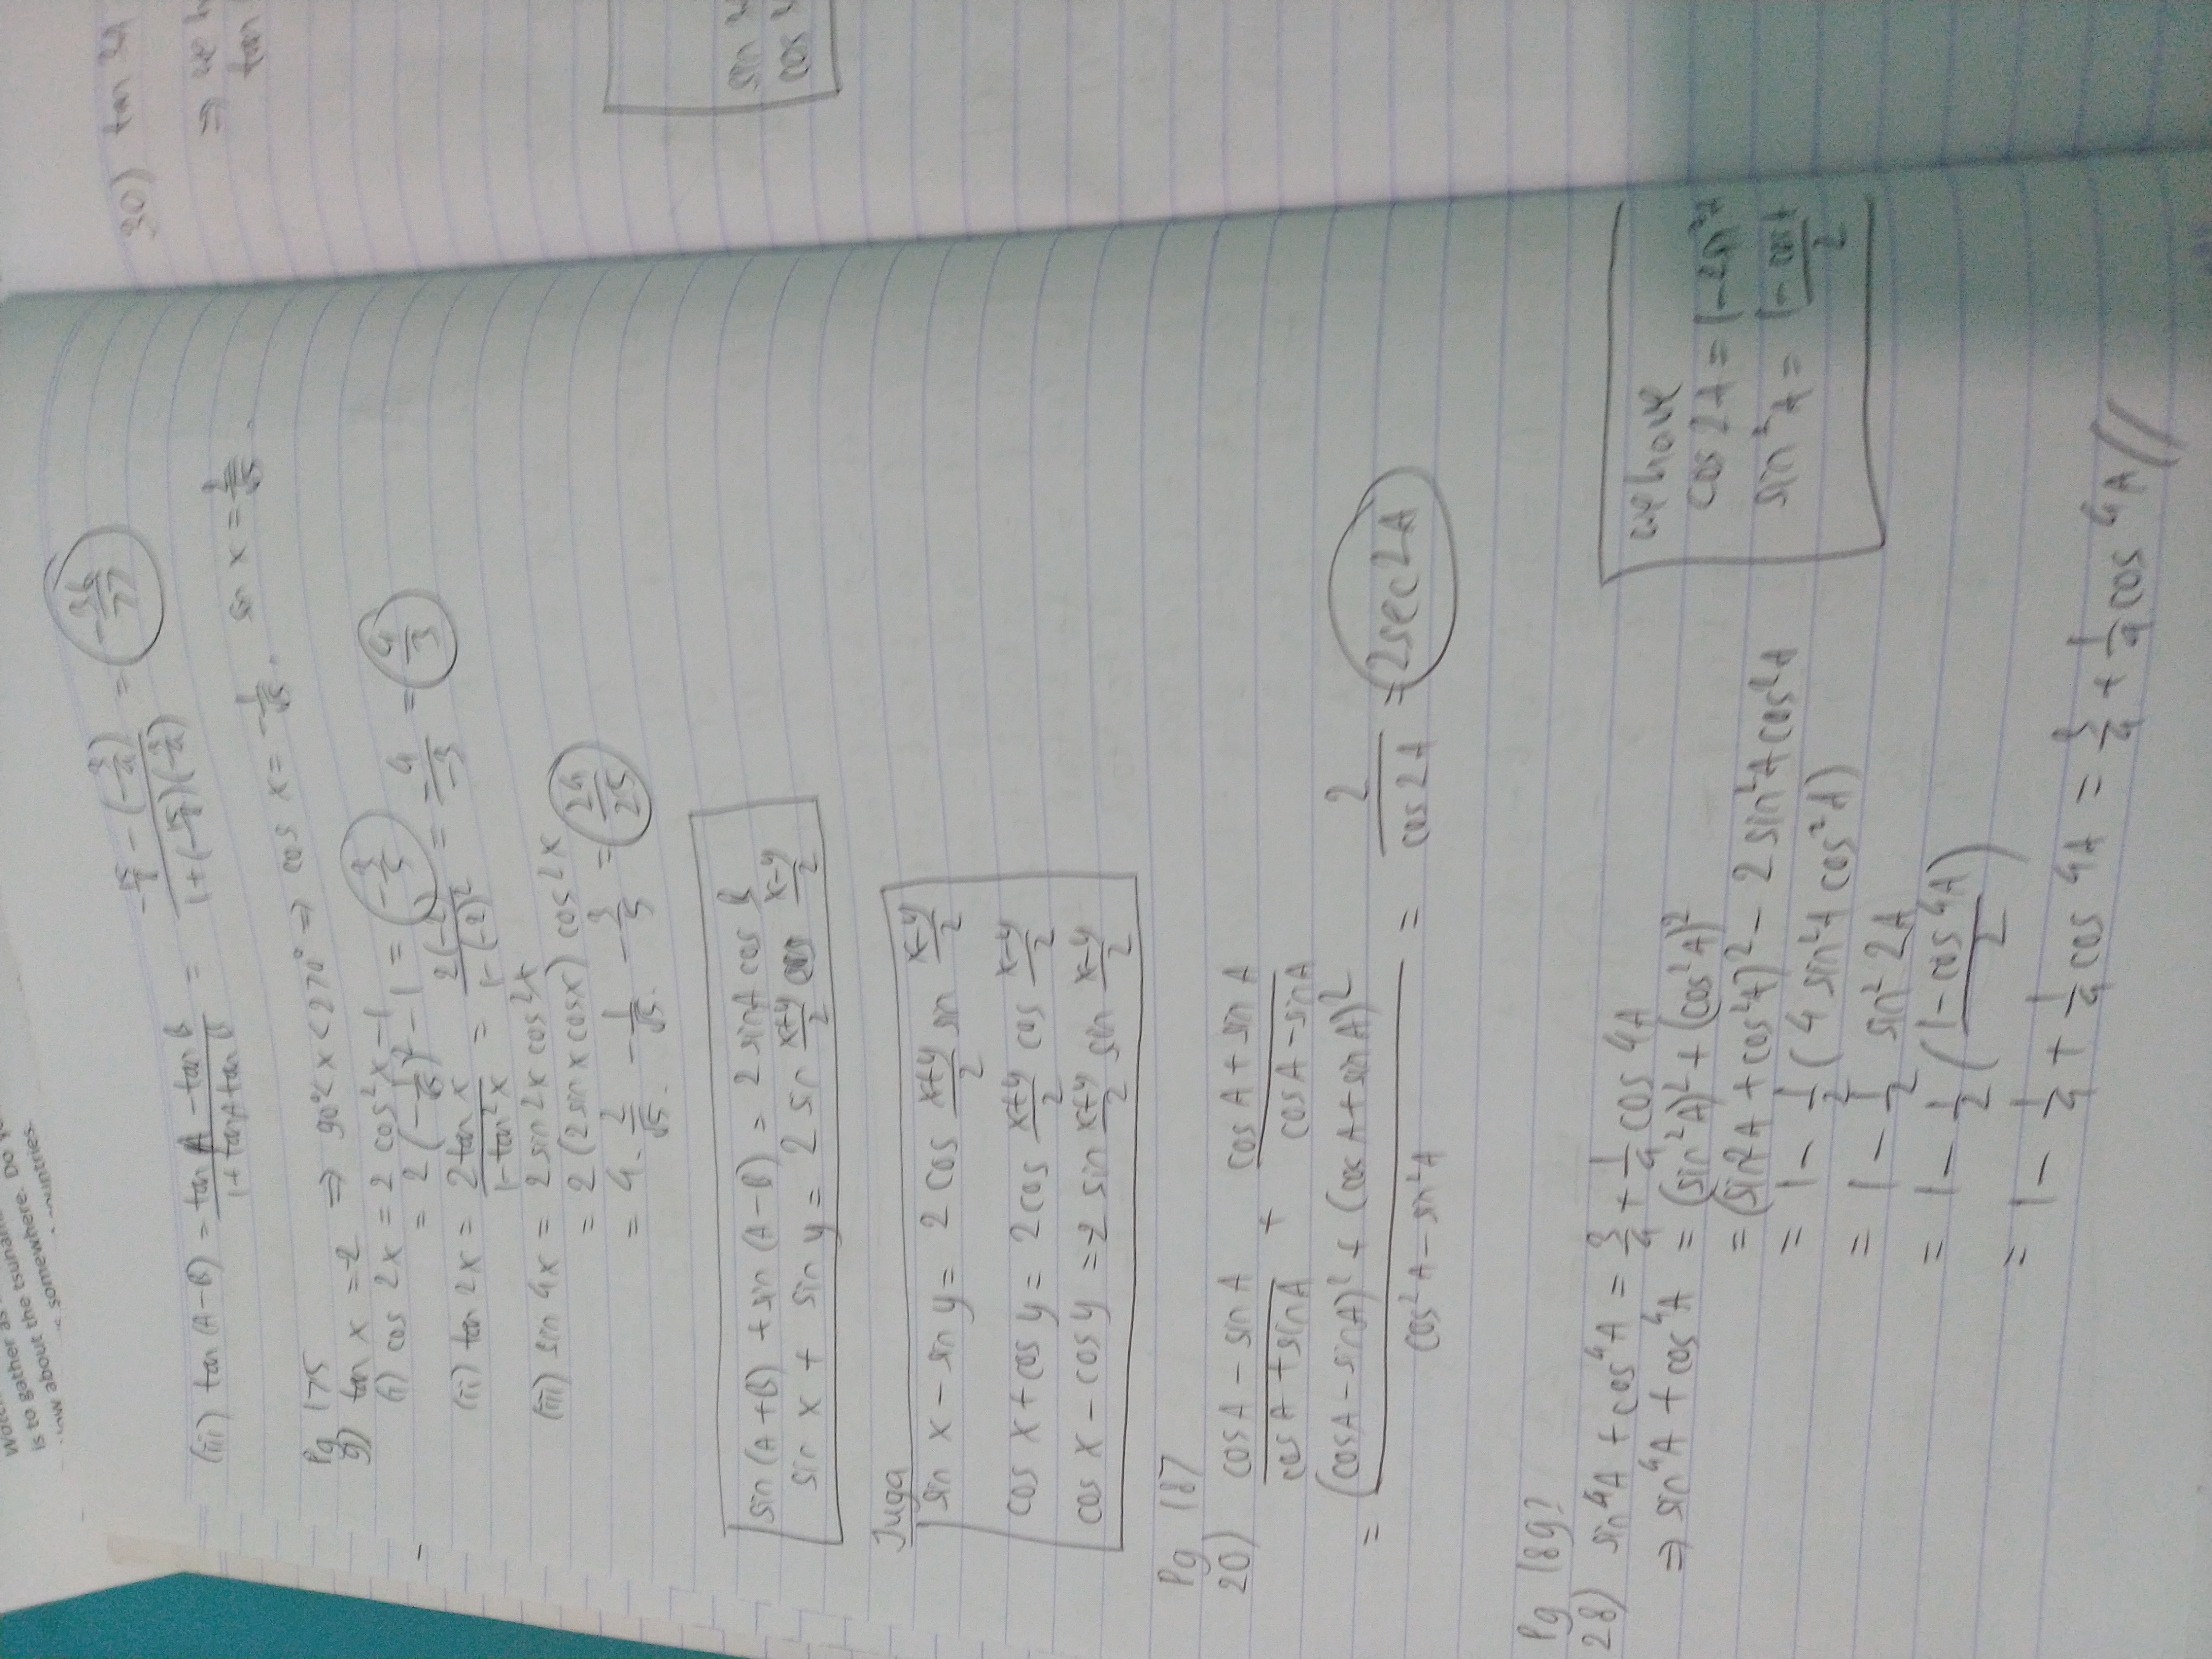 is to gather as
about the tsunam
somewhere. Do
ountries.
(iii) tan (A-B) = (tan A - tan B)/(1 + tan A tan B) = (-15/8 - (-3/4))/(1 + (-15/8)(-3/4)) = -36/77
Pg 175
9) tan x = -2 ⇒ 90° < x < 270° ⇒ cos x = -1/√5, sin x = 2/√5.
(i) cos 2x = 2 cos²x - 1
= 2(-1/√5)² - 1 = -3/5
(ii) tan 2x = 2 tan x/(1 - tan²x) = 2(-2)/(1-(-2)²) = -4/-3 = 4/3
(iii) sin 4x = 2 sin 2x cos 2x
= 2 (2 sin x cos x) cos 2x
= 4 . 2/√5 . -1/√5 . -3/5 = 24/25
sin (A+B) + sin (A-B) = 2 sin A cos B
sin x + sin y = 2 sin (x+y)/2 cos (x-y)/2
Juga
sin x - sin y = 2 cos (x+y)/2 sin (x-y)/2
cos x + cos y = 2 cos (x+y)/2 cos (x-y)/2
cos x - cos y = -2 sin (x+y)/2 sin (x-y)/2
Pg 187
20) (cos A - sin A)/(cos A + sin A) + (cos A + sin A)/(cos A - sin A)
= ((cos A - sin A)² + (cos A + sin A)²)/(cos²A - sin²A) = 2/cos 2A = 2 sec 2A
Pg 189?
28) sin⁴A + cos⁴A = 3/4 + 1/4 cos 4A
⇒ sin⁴A + cos⁴A = (sin²A)² + (cos²A)²
= (sin2A + cos²A)² - 2 sin²A cos²A
= 1 - 1/2 (4 sin²A cos²A)
= 1 - 1/2 sin² 2A
= 1 - 1/2 ((1 - cos 4A)/2)
= 1 - 1/4 + 1/4 cos 4A = 3/4 + 1/4 cos 4A //
we have
cos 2A = 1 - 2 sin²A
sin²A =
30) tan 3A
⇒ we h
tan
sin
cos